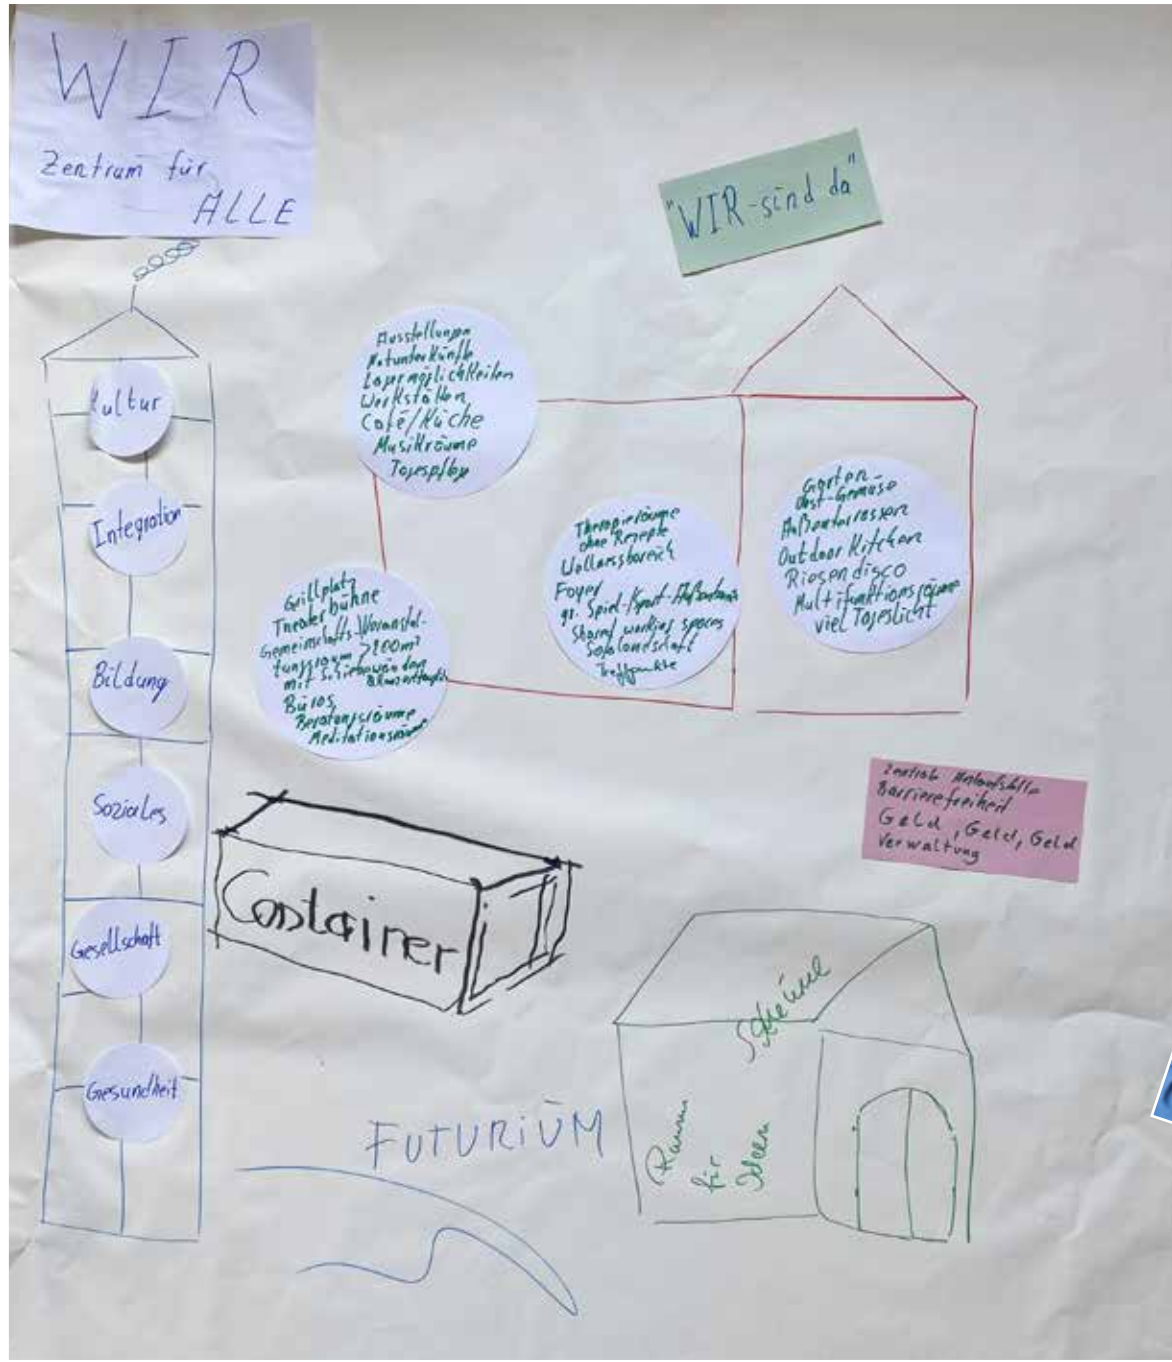 WIR
Zentrum für
ALLE
"WIR-sind da"
Kultur
Integration
Bildung
Soziales
Gesellschaft
Gesundheit
Ausstellungen
Notunterkünfte
Lagermöglichkeiten
Werkstätten
Café/Küche
Musikräume
Tagespflege
Grillplatz
Theaterbühne
Gemeinschafts-Veranstal-
tungsraum >200m²
mit Schiebewänden
Büros,
Beratungsräume
Meditationsräume
Therapieräume
ohne Rezepte
Wellnessbereich
Foyer
gr. Spiel-Sport-
Shared working spaces
Sofalandschaft
Treffpunkte
Garten-
Obst-Gemüse
Außenterrassen
Outdoor Kitchen
Riesendisco
Multifunktionsräume
viel Tageslicht
Zentrale Anlaufstelle
Barrierefreiheit
Geld, Geld, Geld
Verwaltung
Container
Scheune
Raum
für
Ideen
FUTURIÜM